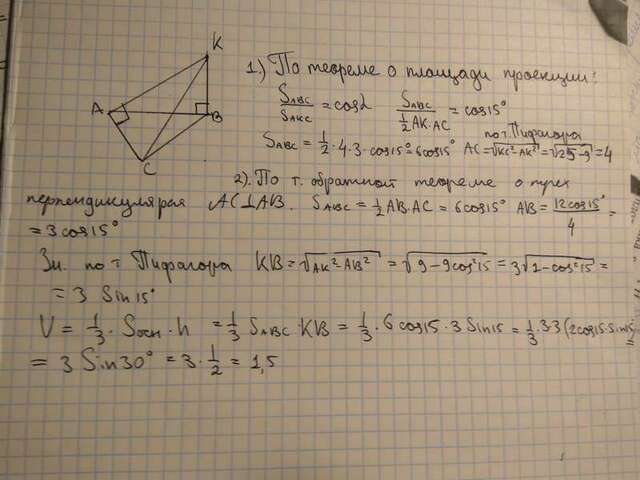 K
A
B
C
1.) По теореме о площади проекции:
S_ABC/S_AKC = cosα   S_ABC/(½AK·AC) = cos15°
S_ABC = ½·4·3·cos15° = 6cos15°   по т. Пифагора AC = √(KC²-AK²) = √(25-9) = 4
2). По т. обратной теореме о трех
перпендикулярах AC⊥AB. S_ABC = ½AB·AC = 6cos15° AB = 12cos15°/4 =
= 3cos15°
3). по т Пифагора KB = √(AK²-AB²) = √(9-9cos²15) = 3√(1-cos²15) =
= 3 Sin15°
V = ⅓·Sосн·h = ⅓ S_ABC KB = ⅓·6cos15·3Sin15 = ⅓·3·3(2cos15·Sin15) =
= 3 Sin30° = 3·½ = 1,5